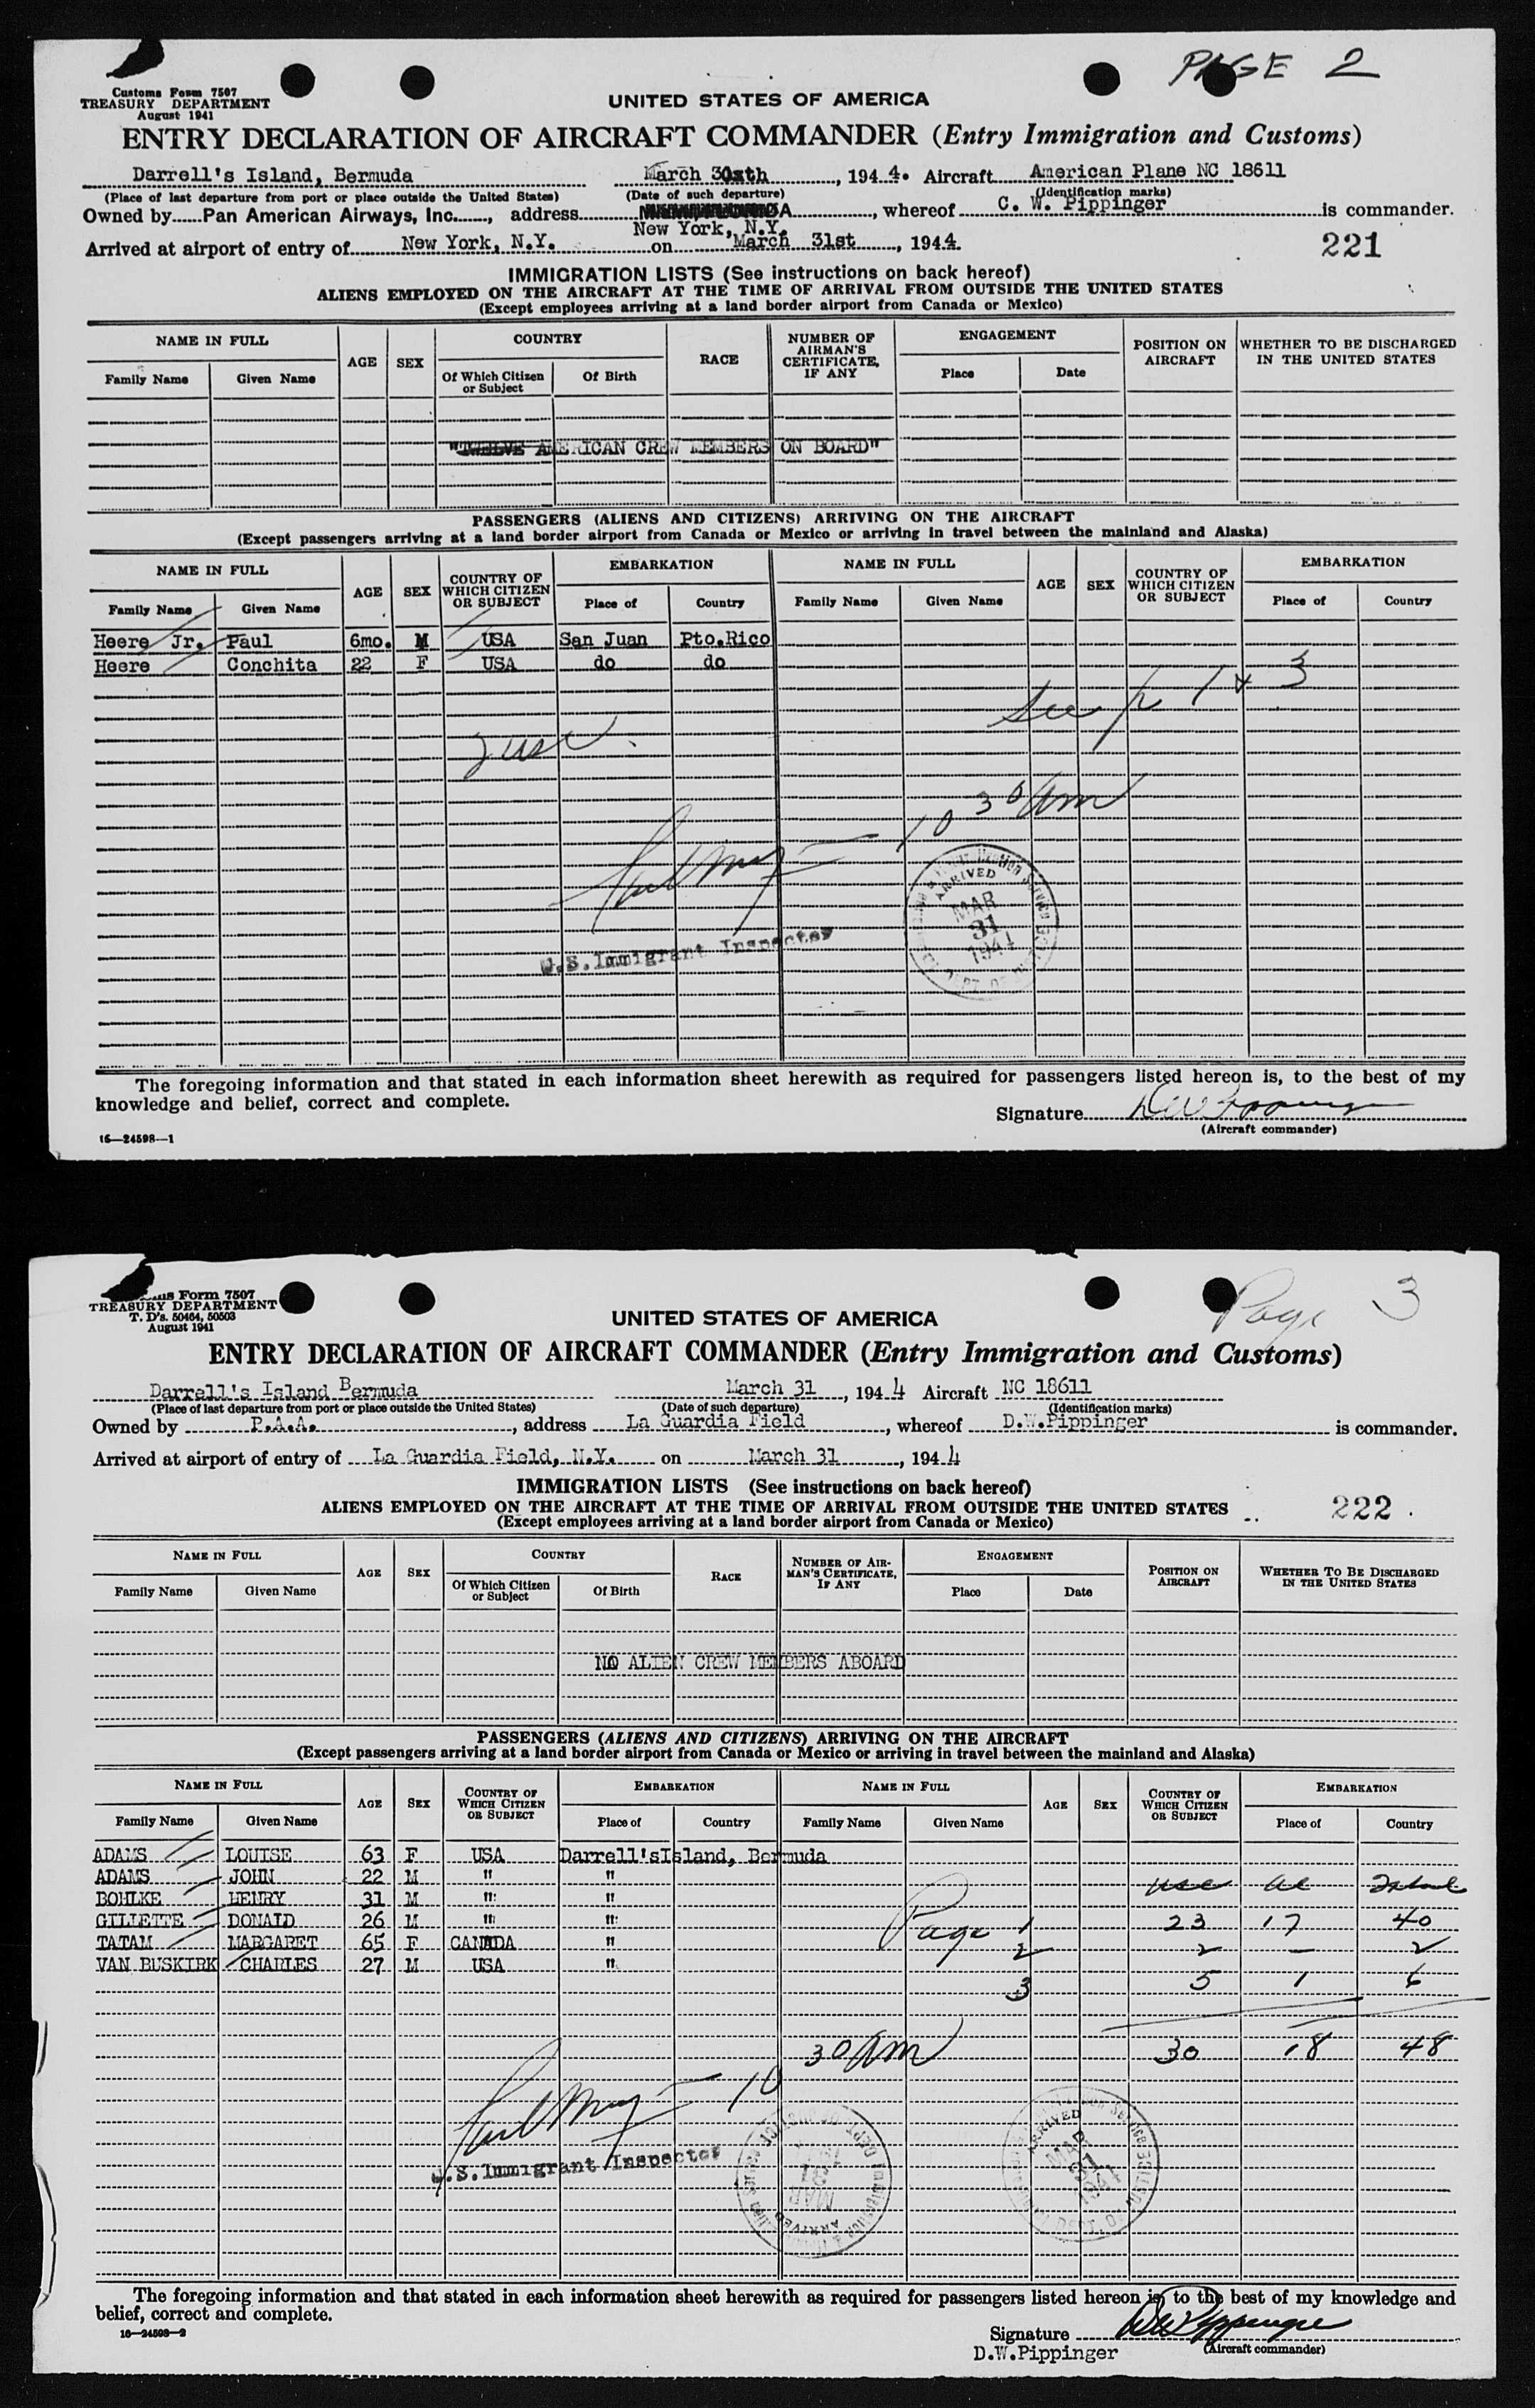 PAGE 2
Customs Form 7507
TREASURY DEPARTMENT
August 1941
UNITED STATES OF AMERICA
ENTRY DECLARATION OF AIRCRAFT COMMANDER (Entry Immigration and Customs)
Darrell's Island, Bermuda March 30xth, 1944. Aircraft American Plane NC 18611
(Place of last departure from port or place outside the United States) (Date of such departure) (Identification marks)
Owned by Pan American Airways, Inc., address New York, N.Y., whereof C. W. Pippinger is commander.
Arrived at airport of entry of New York, N.Y. on March 31st, 1944.
221
IMMIGRATION LISTS (See instructions on back hereof)
ALIENS EMPLOYED ON THE AIRCRAFT AT THE TIME OF ARRIVAL FROM OUTSIDE THE UNITED STATES
(Except employees arriving at a land border airport from Canada or Mexico)
NAME IN FULL AGE SEX COUNTRY RACE NUMBER OF AIRMAN'S CERTIFICATE, IF ANY ENGAGEMENT POSITION ON AIRCRAFT WHETHER TO BE DISCHARGED IN THE UNITED STATES
Family Name Given Name Of Which Citizen or Subject Of Birth Place Date
"TWELVE AMERICAN CREW MEMBERS ON BOARD"
PASSENGERS (ALIENS AND CITIZENS) ARRIVING ON THE AIRCRAFT
(Except passengers arriving at a land border airport from Canada or Mexico or arriving in travel between the mainland and Alaska)
NAME IN FULL AGE SEX COUNTRY OF WHICH CITIZEN OR SUBJECT EMBARKATION NAME IN FULL AGE SEX COUNTRY OF WHICH CITIZEN OR SUBJECT EMBARKATION
Family Name Given Name Place of Country Family Name Given Name Place of Country
Heere Jr. Paul 6mo. M USA San Juan Pto.Rico
Heere Conchita 22 F USA do do
See p 1 & 3
2 usc
10 30 Am
U.S. Immigrant Inspector
ARRIVED
MAR
31
1944
The foregoing information and that stated in each information sheet herewith as required for passengers listed hereon is, to the best of my
knowledge and belief, correct and complete.
Signature DW Pippinger
(Aircraft commander)
16—24598—1
Page 3
Form 7507
TREASURY DEPARTMENT
T. D's. 50464, 50503
August 1941
UNITED STATES OF AMERICA
ENTRY DECLARATION OF AIRCRAFT COMMANDER (Entry Immigration and Customs)
Darrell's Island Bermuda March 31, 1944 Aircraft NC 18611
(Place of last departure from port or place outside the United States) (Date of such departure) (Identification marks)
Owned by P.A.A., address La Guardia Field, whereof D.W.Pippinger is commander.
Arrived at airport of entry of La Guardia Field, N.Y. on March 31, 1944
IMMIGRATION LISTS (See instructions on back hereof)
ALIENS EMPLOYED ON THE AIRCRAFT AT THE TIME OF ARRIVAL FROM OUTSIDE THE UNITED STATES
222
(Except employees arriving at a land border airport from Canada or Mexico)
NAME IN FULL AGE SEX COUNTRY RACE NUMBER OF AIRMAN'S CERTIFICATE, IF ANY ENGAGEMENT POSITION ON AIRCRAFT WHETHER TO BE DISCHARGED IN THE UNITED STATES
Family Name Given Name Of Which Citizen or Subject Of Birth Place Date
NO ALIEN CREW MEMBERS ABOARD
PASSENGERS (ALIENS AND CITIZENS) ARRIVING ON THE AIRCRAFT
(Except passengers arriving at a land border airport from Canada or Mexico or arriving in travel between the mainland and Alaska)
NAME IN FULL AGE SEX COUNTRY OF WHICH CITIZEN OR SUBJECT EMBARKATION NAME IN FULL AGE SEX COUNTRY OF WHICH CITIZEN OR SUBJECT EMBARKATION
Family Name Given Name Place of Country Family Name Given Name Place of Country
ADAMS LOUISE 63 F USA Darrell'sIsland, Bermuda
ADAMS JOHN 22 M " "
BOHLKE HENRY 31 M " " usc al Total
GILLETTE DONALD 26 M " " Page 1 23 17 40
TATAM MARGARET 65 F CANADA " 2 2 – 2
VAN BUSKIRK CHARLES 27 M USA " 3 5 1 6
30 18 48
10 30 Am
U.S. Immigrant Inspector
ARRIVED
MAR
31
ARRIVED
MAR
31
1944
The foregoing information and that stated in each information sheet herewith as required for passengers listed hereon is, to the best of my knowledge and
belief, correct and complete.
16—24598—2
Signature DW Pippinger
D.W.Pippinger (Aircraft commander)